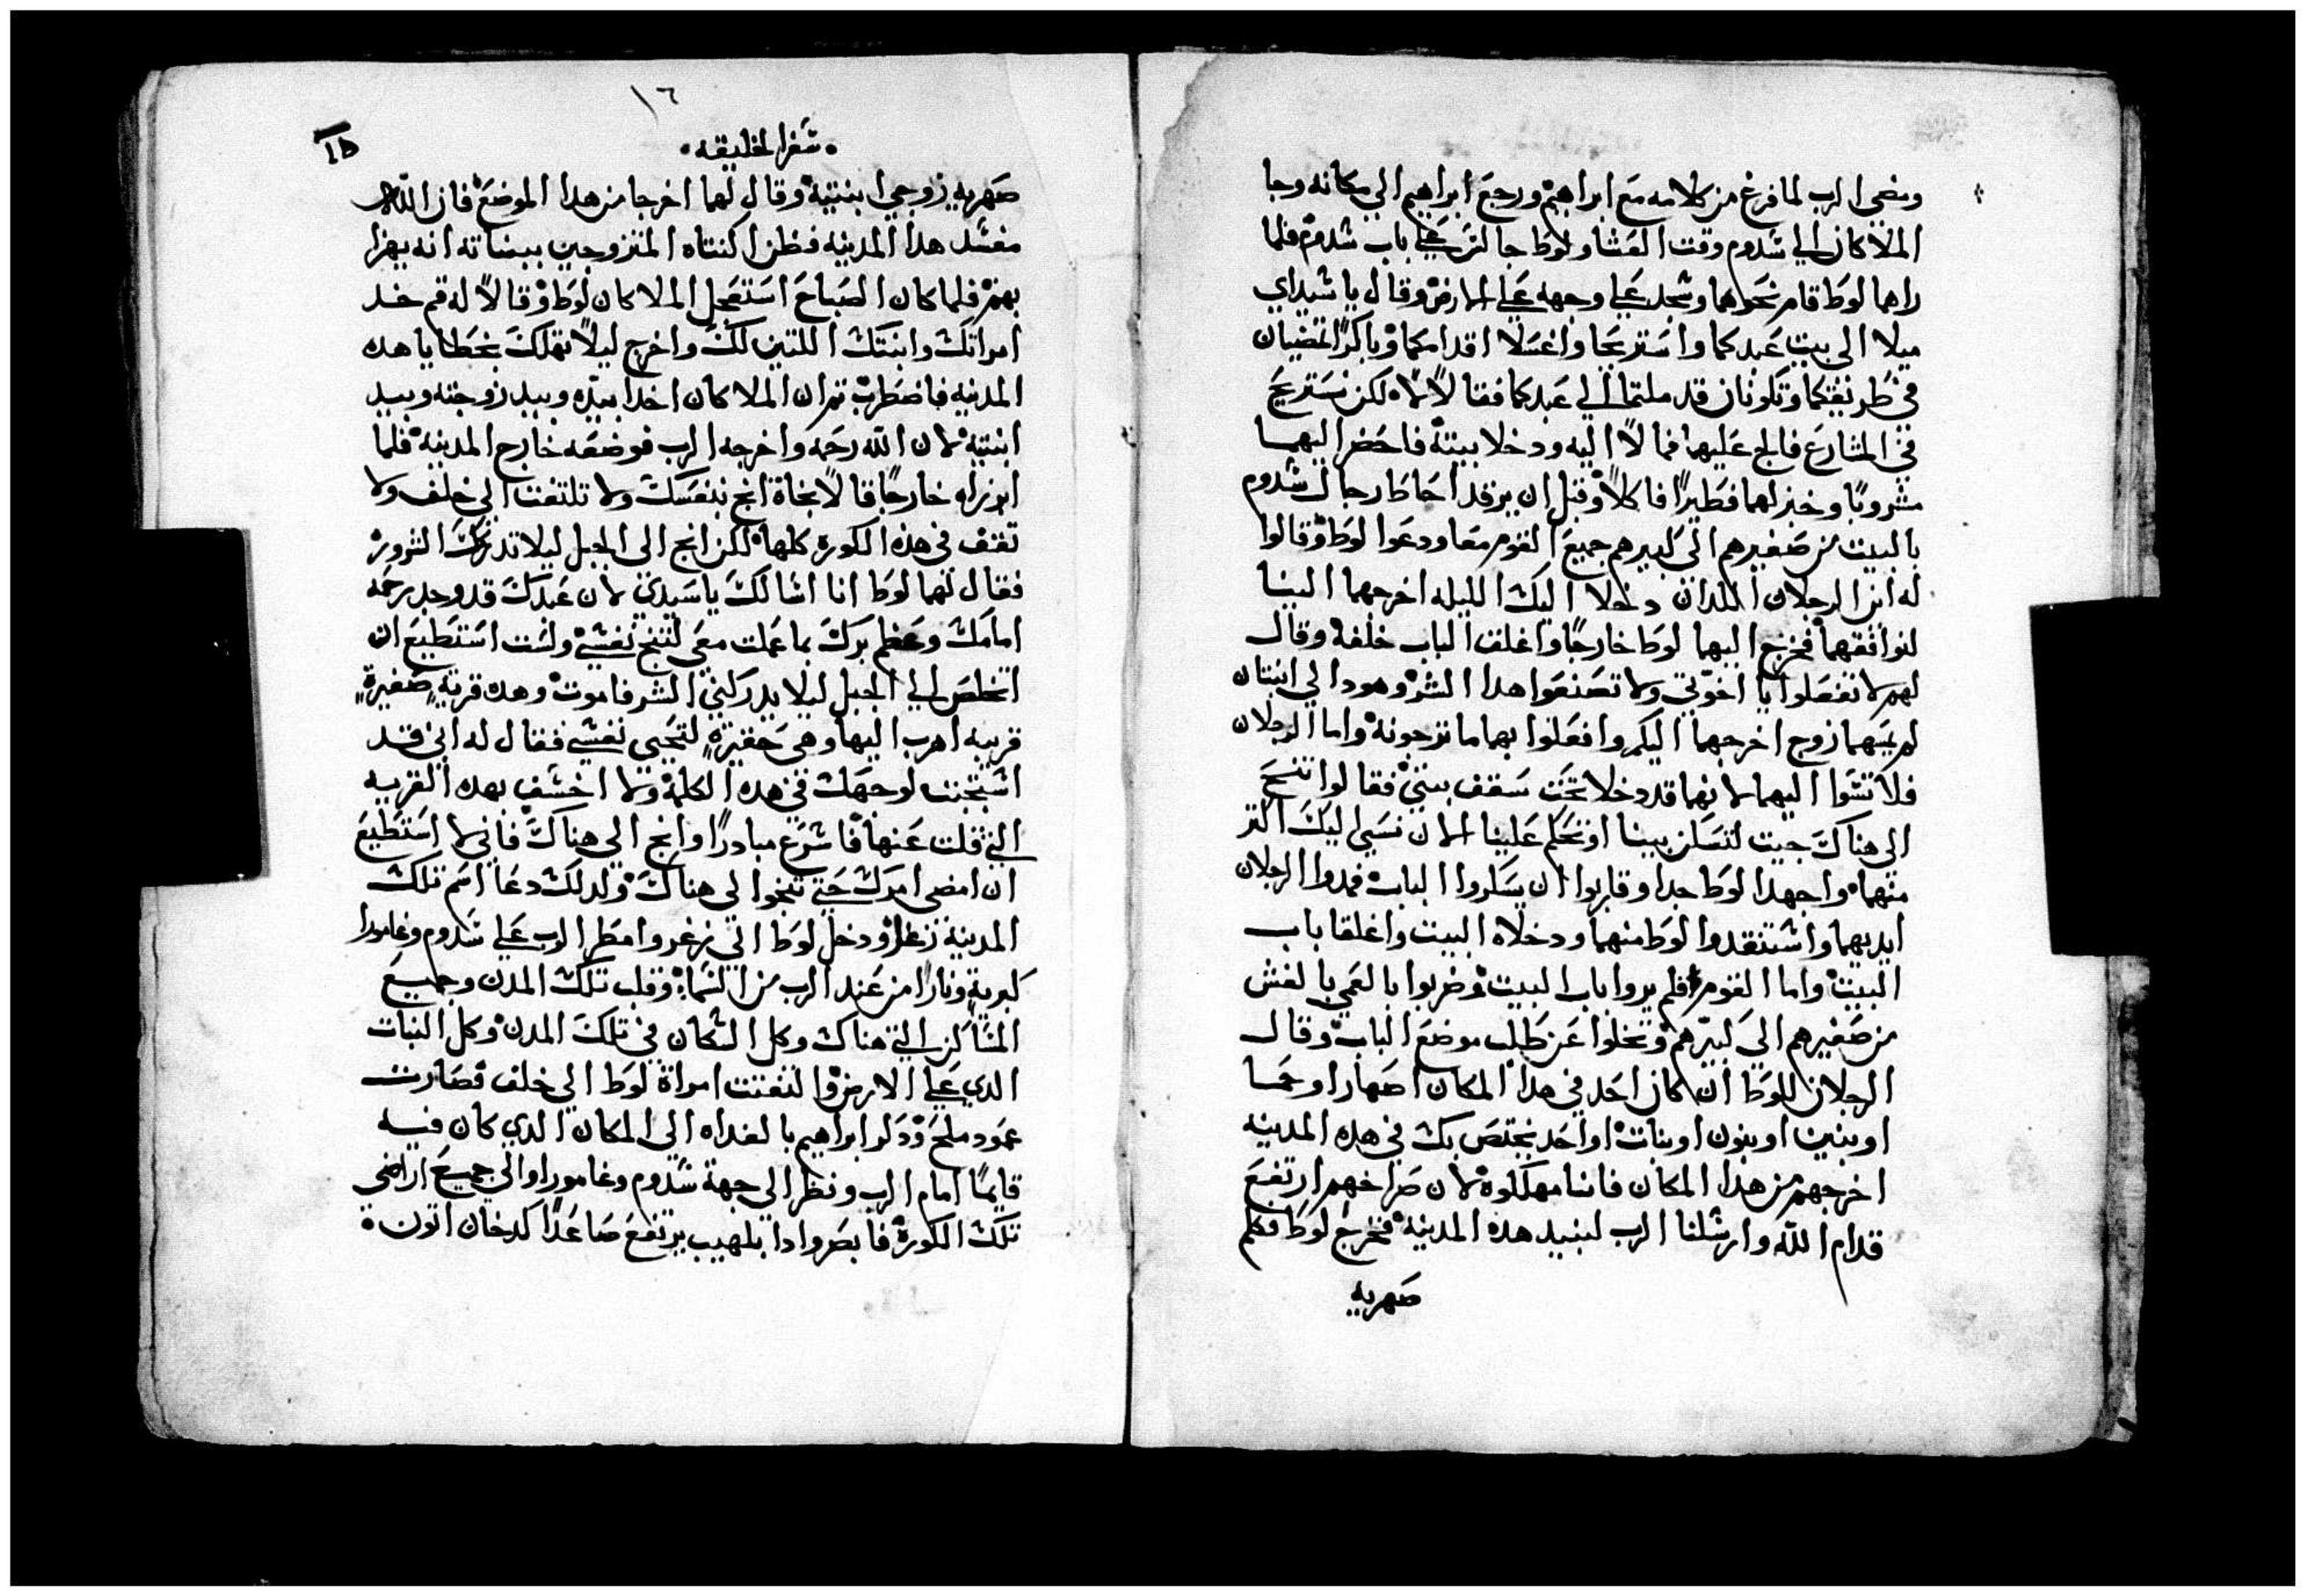 ومضى الرب لما فرغ من كلامه مع ابراهيم ورجع ابراهيم الي مكانه وجا
الملاكان الي سدوم وقت العشا ولوط جالس علي باب سدوم فلما
راهما لوط قام نحوهما وسجد علي وجهه علي الارض وقال يا سيداي
ميلا الى بيت عبدكما واستريحا واغسلا اقدامكما وباكرا تمضيان
في طريقكما وتكونان قد ملتما الي عبدكما فقالا لا لكن نستريح
في الشارع فالح عليهما فمالا اليه ودخلا بيته فاحضر اليهما
مشروبا وخبز لهما فطيرا فاكلا وقبل ان يرقدا احاطا رجال سدوم
بالبيت من صغيرهم الى كبيرهم جميع القوم معا ودعوا لوط وقالوا
له اين الرجلان اللدان دخلا اليك الليله اخرجهما الينا
لنوافقهما فخرج اليهما لوط خارجا واغلق الباب خلفه وقال
لهم لا تفعلوا يا اخوتي ولا تصنعوا هدا الشر وهودا لي ابنتان
لم يمسهما زوج اخرجهما اليكم وافعلوا بهما ما ترجونه واما الرجلان
فلا تسوا اليهما لانهما قد دخلا تحت سقف بيتي فقالوا تنح
الى هناك جيت لتسكن بيننا او تحكم علينا الان نسي اليك اكثر
منهما واجهدا لوط جدا وقاربوا ان يكسروا الباب فمدوا الرجلان
ايديهما واستنقدوا لوط منهما ودخلاه البيت واغلقا باب
البيت واما القوم فلم يروا باب البيت وضربوا بالعمي بالغش
من صغيرهم الى كبيرهم وتخلوا عن طلب موضع الباب وقال
الرجلان للوط ان كان احد في هدا المكان اصهارا وحما
او بنين او بنون او بنات او احد يختص بك في هده المدينه
اخرجهم من هدا المكان فاننا مهلكوه لان صراخهم ارتفع
قدام الله وارسلنا الرب لنبيد هده المدينه فخرج لوط فكلم
صهريه
١٦
سفر الخليقه
صهريه زوجي ابنتيه وقال لهما اخرجا من هدا الموضع فان الله
مفسد هدا المدينه فظن اكنتاه المتزوجين ببناته انه يهزا
بهم فلما كان الصباح استعجل الملاكان لوط وقالا له قم خد
امراتك وابنتك اللتين لك واخرج ليلا تهلك بخطايا هده
المدينه فاضطرب ثم ان الملاكان اخدا بيده وبيد زوجته وبيد
ابنتيه لان الله رحمه واخرجه الرب فوضعه خارج المدينه فلما
ابرزاه خارجا قالا نجاة انج بنفسك ولا تلتفت الى خلف ولا
تقف في هده الكوره كلها لكن انج الى الجبل ليلا تدركك الشرور
فقال لهما لوط انا اسالك يا سيدي لان عبدك قد وجد رحمه
امامك وعظم برك بما عملت معى لتنج نفسي ولست استطيع ان
اتخلص الي الجبل ليلا يدركني الشر فاموت وهده قرية صغيرة
قريبه اهرب اليها وهى حقيرة لتحيى نفسي فقال له اني قد
استجبت لوجهك في هده الكلمة ولا اخسف بهده القريه
التي قلت عنها فاسرع مبادرا وانج الى هناك فاني لا استطيع
ان امضى امرك حتى تنجوا الى هناك ولدلك دعا اسم تلك
المدينه زغر ودخل لوط الى زغر وامطر الرب علي سدوم وغامورا
كبرية ونارا من عند الرب من السما وقلب تلك المدن وجميع
المساكن التي هناك وكل السكان في تلك المدن وكل النبات
الدي علي الارض والتفتت امراة لوط الى خلف فصارت
عمود ملح ودكر ابراهيم بالغداه الى المكان الدي كان فيه
قايما امام الرب ونظر الى جهة سدوم وغامورا والي جميع اراضى
تلك الكورة فابصر وادا بلهيب يرتفع صاعدا كدخان اتون